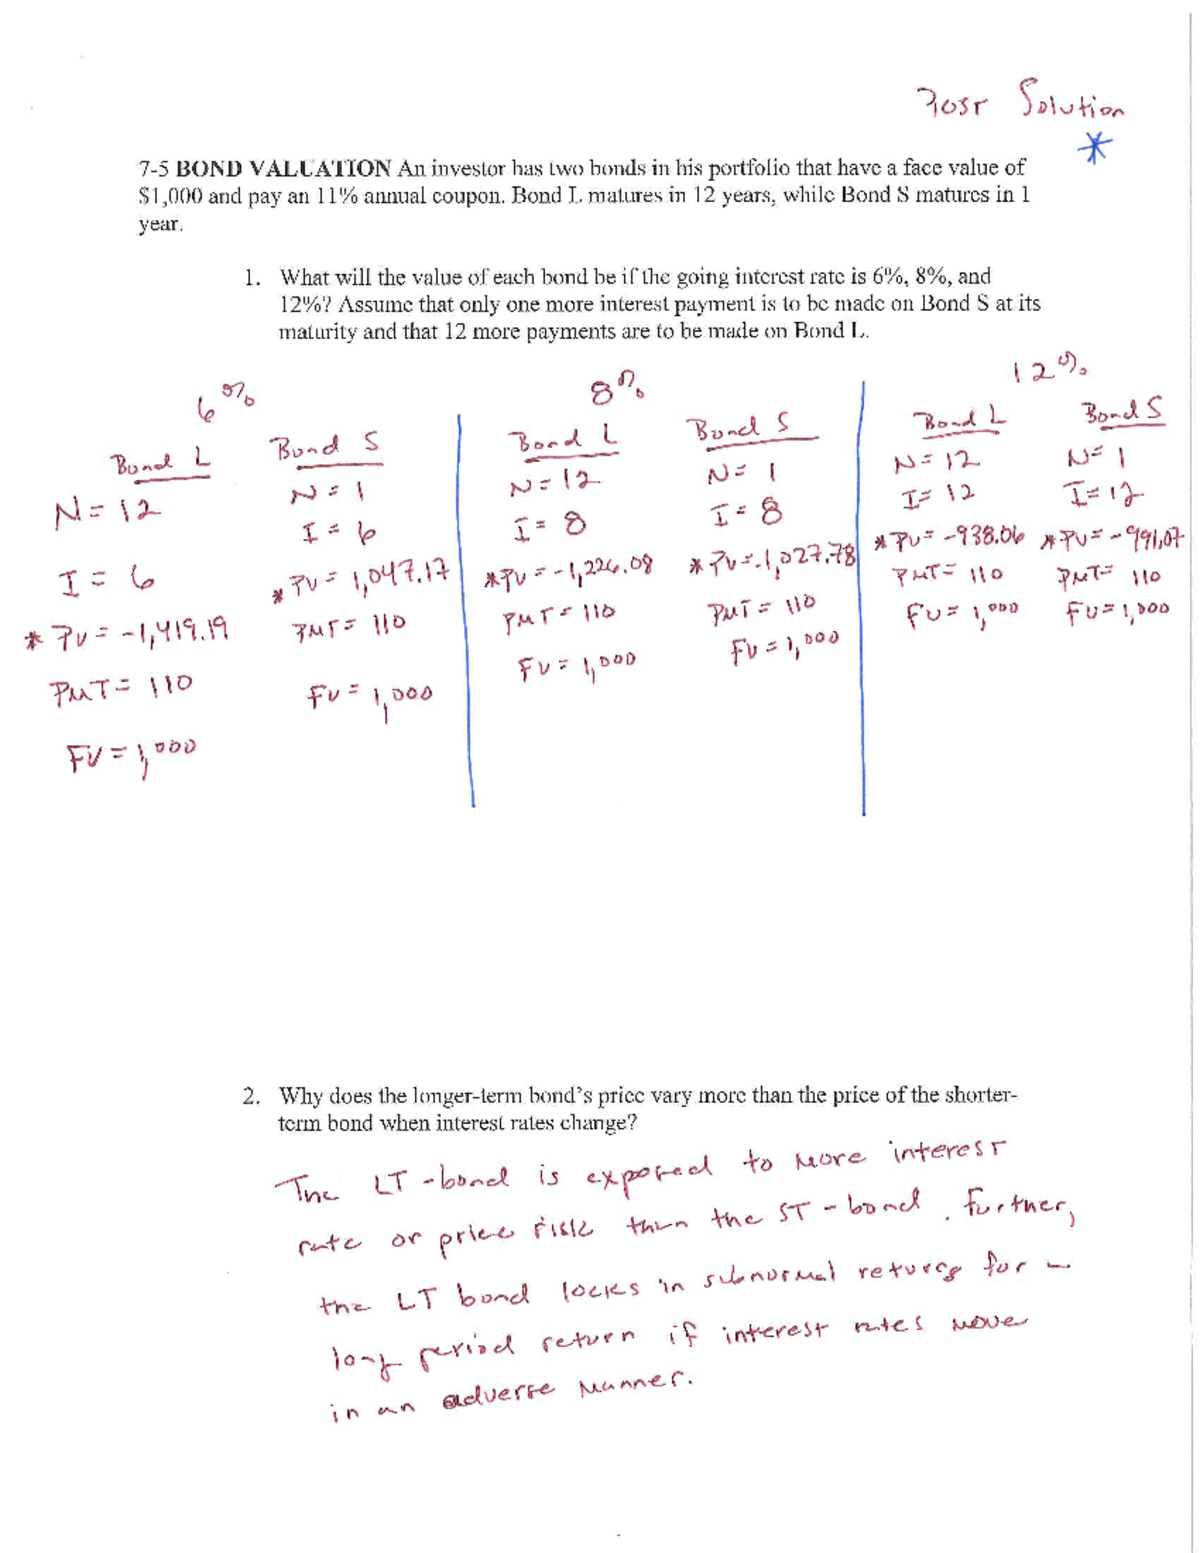 Post Solution
*
7-5 BOND VALUATION An investor has two bonds in his portfolio that have a face value of
$1,000 and pay an 11% annual coupon. Bond L matures in 12 years, while Bond S matures in 1
year.
1. What will the value of each bond be if the going interest rate is 6%, 8%, and
12%? Assume that only one more interest payment is to be made on Bond S at its
maturity and that 12 more payments are to be made on Bond L.
6%
Bond L
N = 12
I = 6
* PV = -1,419.19
PMT = 110
FV = 1,000
Bond S
N = 1
I = 6
* PV = 1,047.17
PMT = 110
FV = 1,000
8%
Bond L
N = 12
I = 8
* PV = -1,226.08
PMT = 110
FV = 1,000
Bond S
N = 1
I = 8
* PV = -1,027.78
PMT = 110
FV = 1,000
12%
Bond L
N = 12
I = 12
* PV = -938.06
PMT = 110
FV = 1,000
Bond S
N = 1
I = 12
* PV = -991.07
PMT = 110
FV = 1,000
2. Why does the longer-term bond's price vary more than the price of the shorter-
term bond when interest rates change?
The LT-bond is exposed to more interest
rate or price risk than the ST-bond. Further,
the LT bond locks in subnormal returns for
long period return if interest rates move
in an adverse manner.